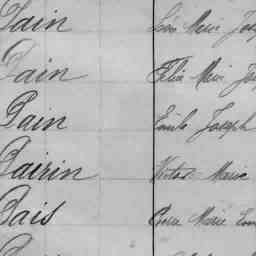 Pain Léon Marie Jos
Pain Félix Marie Jo
Pain Emile Joseph
Pairin Victor Marie
Pais Pierre Marie